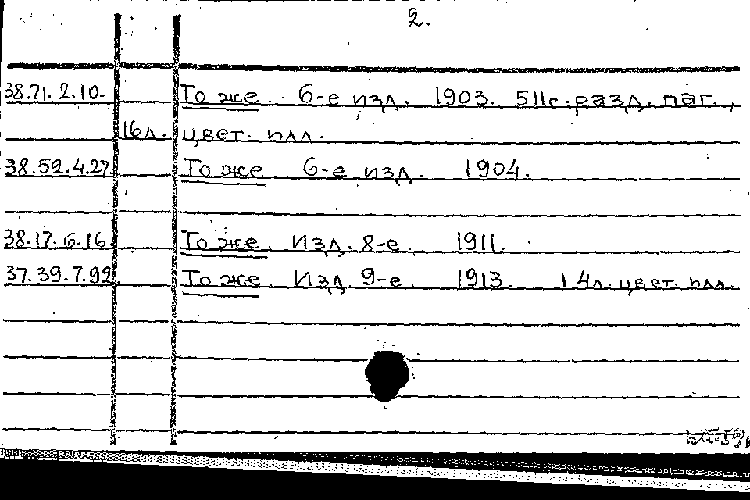 2.
38.71.2.10. То же 6-е изд. 1903. 511с. разд. паг.,
16л. цвет. илл.
38.59.4.27 То же 6-е изд. 1904.
38.17.6.16. То же. Изд. 8-е. 1911.
37.39.7.92 То же. Изд. 9-е 1913. 14л. цвет. илл.